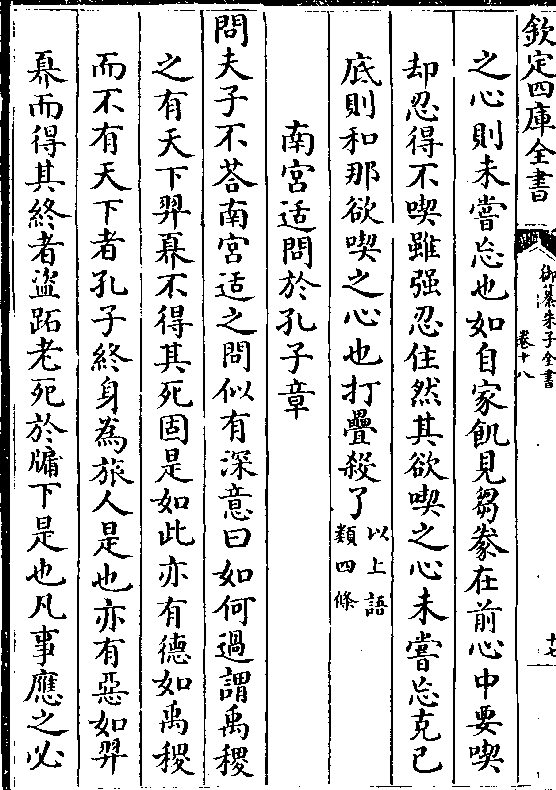 欽定四庫全書
御纂朱子全書
卷十八
十七
之心則未嘗忘也如自家飢見芻豢在前心中要喫
却忍得不喫雖强忍住然其欲喫之心未嘗忘克己
底則和那欲喫之心也打疊殺了以上語
類四條
南宫适問於孔子章
問夫子不荅南宫适之問似有深意曰如何過謂禹稷
之有天下羿奡不得其死固是如此亦有德如禹稷
而不有天下者孔子終身為旅人是也亦有惡如羿
奡而得其終者盗跖老死於牖下是也凡事應之必